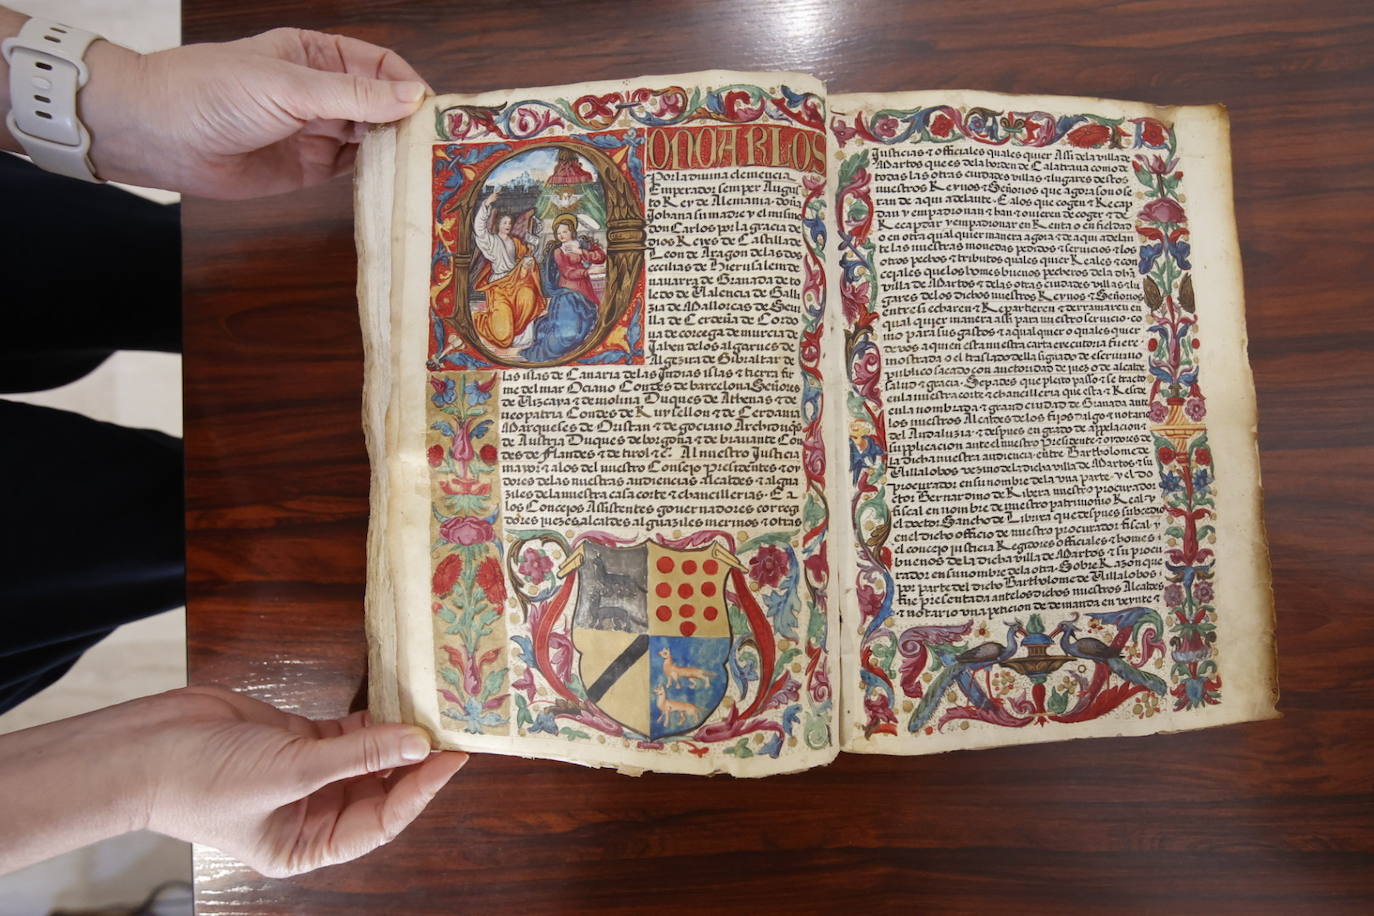 DON CARLOS
Por la divina clemencia
Emperador semper Augus
to Rey de Alemania · doña
Johana su madre y el mismo
don Carlos por la gracia de
dios Reyes de Castilla de
Leon de Aragon de las dos
cecilias de Hierusalem de
navarra de Granada de to
ledo de Valencia de Galli
zia de Mallorcas de Sevi
lla de Cerdeña de Cordo
va de corcega de murcia de
Jahen de los algarves de
Algezira de Gibraltar de
las islas de Canaria de las Indias islas & tierra fir
me del mar Oçiano Condes de barcelona Señores
de Vizcaya & de molina Duques de Athenas & de
neopatria Condes de Ruysellon & de Cerdania
Marqueses de Oristan & de gociano Archiduq̃s
de Austria Duques de borgoña & de bravante Con
des de Flandes & de tirol &c. Al nuestro Justicia
mayor & a los del nuestro Consejo Presidentes & oy
dores de las nuestras audiencias alcaldes & algua
ziles de la nuestra casa corte & chancillerias · E a
los Concejos Assistentes governadores corregi
dores juezes alcaldes alguaziles merinos & otras
Justicias & officiales quales quier Assi de la villa de
Martos que es de la horden de Calatrava como de
todas las otras ciudades villas & lugares destos
nuestros Reynos & Señorios que agora son o se
ran de aqui adelante · E a los que cogen & Recap
dan y empadronan & han & ovieren de coger & de
Recaptar y empadronar en Renta o en fieldad
o en otra qual quier manera agora & de aqui adelan
te las nuestras monedas pedidos & servicios & los
otros pechos & tributos quales quier Reales & con
cejales que los homes buenos pecheros de la dh̃a
villa de Martos & de las otras ciudades villas & lu
gares de los dichos nuestros Reynos & Señorios
entre si echaren & Repartieren & derramaren en
qual quier manera assi para nuestro servicio co
mo para sus gastos & a qualquier o quales quier
de vos a quien esta nuestra carta executoria fuere
mostrada o el traslado della signado de escrivano
publico sacado con auctoridad de juez o de alcalde
salud & gracia · Sepades que pleito passo & se tracto
en la nuestra corte & chancilleria que esta & Reside
en la nombrada & grand ciudad de Granada ante
los nuestros Alcaldes de los fijos dalgo & notario
del Andaluzia · & despues en grado de appelacion &
supplicacion ante el nuestro Presidente & oydores de
la dicha nuestra audiencia · entre Bartholome de
Villalobos vezino de la dicha villa de Martos & su
procurador en su nombre de la una parte · y el do
ctor Bernardino de Ribera nuestro procurador
fiscal en nombre de nuestro patrimonio Real · y
el doctor Sancho de Librixa que despues subcedio
en el dicho officio de nuestro procurador fiscal · y
el concejo justicia Regidores officiales & homes
buenos de la dicha villa de Martos & su procu
rador en su nombre de la otra · Sobre Razon que
por parte del dicho Bartholome de Villalobos
fue presentada ante los dichos nuestros Alcaldes
& notario una peticion de demanda en veynte &